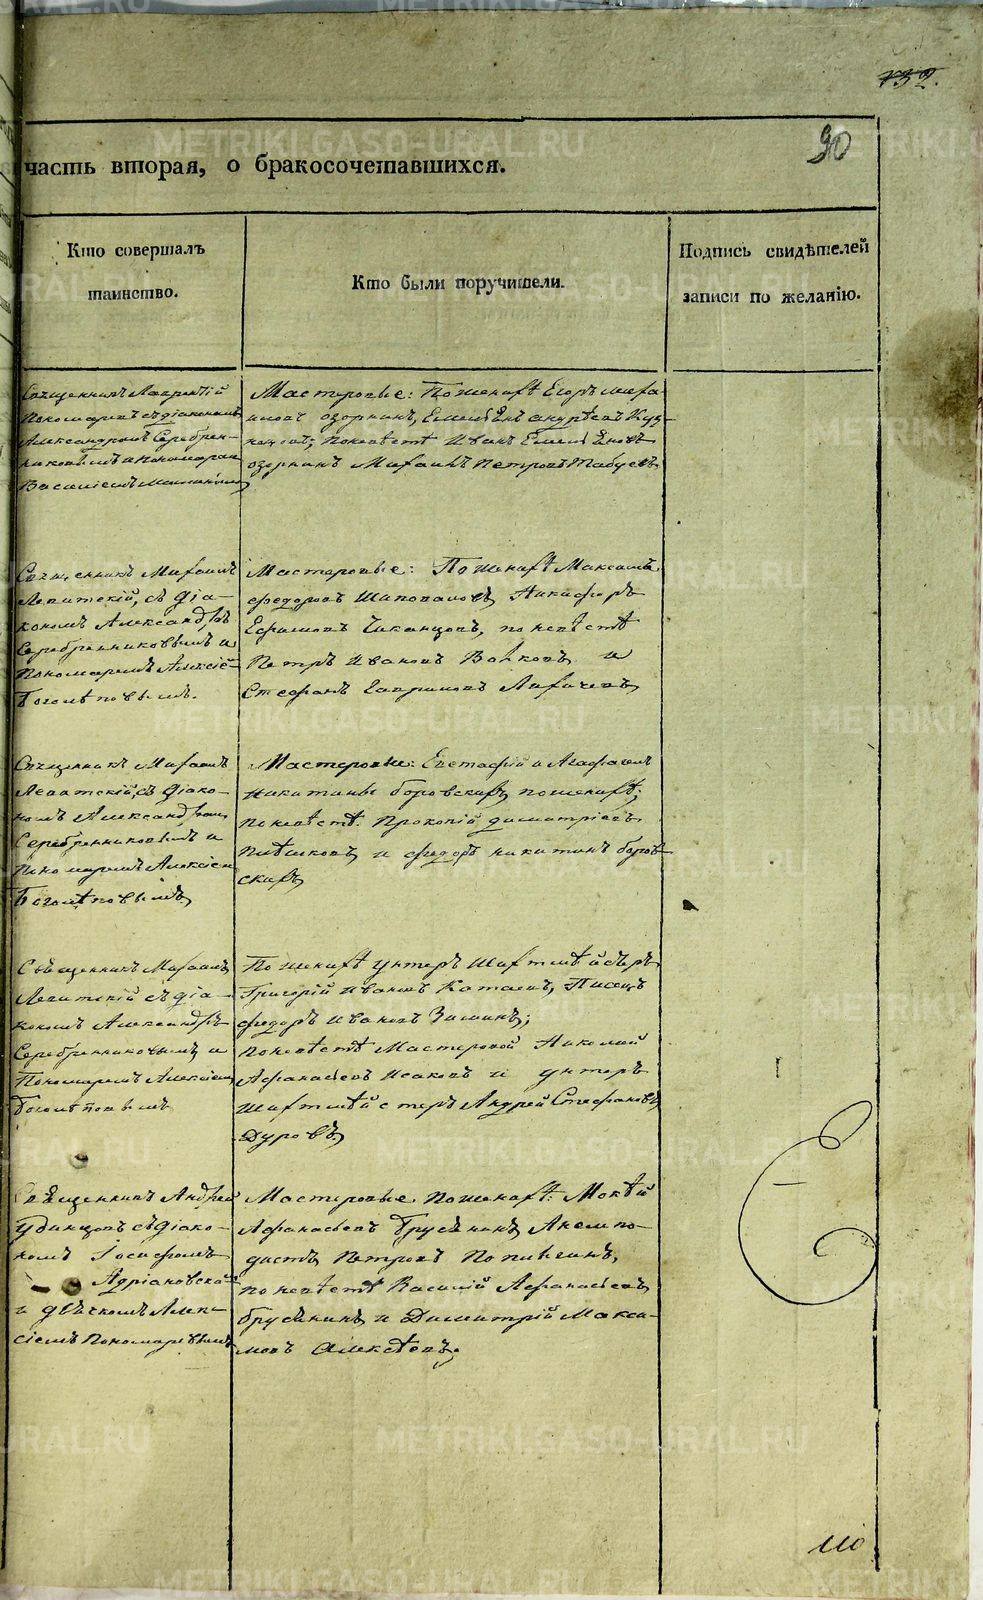 132.
90
часть вторая, о бракосочетавшихся.
Кто совершалъ
таинство.
Кто были поручители.
Подпись свидѣтелей
записи по желанію.
Священникъ Лаврентій
Пономаревъ съ діакономъ
Александромъ Серебрен-
никовымъ и Пономаремъ
Василіемъ
Мастеровые: По женихѣ Егоръ
озорнинъ, Емельянъ андреевъ Куз-
нецовъ; по невѣстѣ Иванъ Емельяновъ
озорнинъ Михаилъ Петровъ
Священникъ Михаилъ
Левитскій, съ діа-
кономъ Александръ
Серебренниковымъ и
Пономаремъ Алексіе
Боголѣповымъ.
Мастеровые: По женихѣ Максимъ
федоровъ Шаповаловъ, Никифоръ
Ефимовъ Чиканцовъ, по невѣстѣ
Петръ Ивановъ Волковъ и
Стефанъ Гавриловъ Лихачевъ
Священникъ Михаилъ
Левитскій, съ діако-
номъ Александромъ
Серебренниковымъ и
Пономаремъ Алексіем
Боголѣповымъ
Мастеровые: Евстафій и Агафаилъ
Никитины боровскихъ по женихѣ;
по невѣстѣ: Прокопій димитріевъ
Пѣшковъ и федоръ никитинъ боров-
скихъ
Священникъ Михаилъ
Левитскій съ діа-
кономъ Александръ
Серебренниковымъ и
Пономаремъ Алексіем
Боголѣповымъ
По женихѣ унтеръ шихтмѣйстръ
Григорій Ивановъ Катаевъ, Писецъ
федоръ Ивановъ Зиминъ;
по невѣстѣ Мастеровой Николай
Афанасьевъ Исаковъ и унтеръ
шихтмѣйстеръ Андрей Стефановъ
Дуровъ
Священникъ Андрей
Удинцовъ съ діако-
номъ Іосифомъ
Адріановской
и дьячкомъ Алек-
сіемъ Пономаревымъ
Мастеровые по женихѣ: Мокѣй
Афанасьевъ брусянинъ, Акемпо-
дистъ Петровъ Попингинъ,
по невѣстѣ Василій Афанасьевъ
брусянинъ и Димитрій Макси-
мовъ Алексѣевъ;
110
METRIKI.GASO-URAL.RU